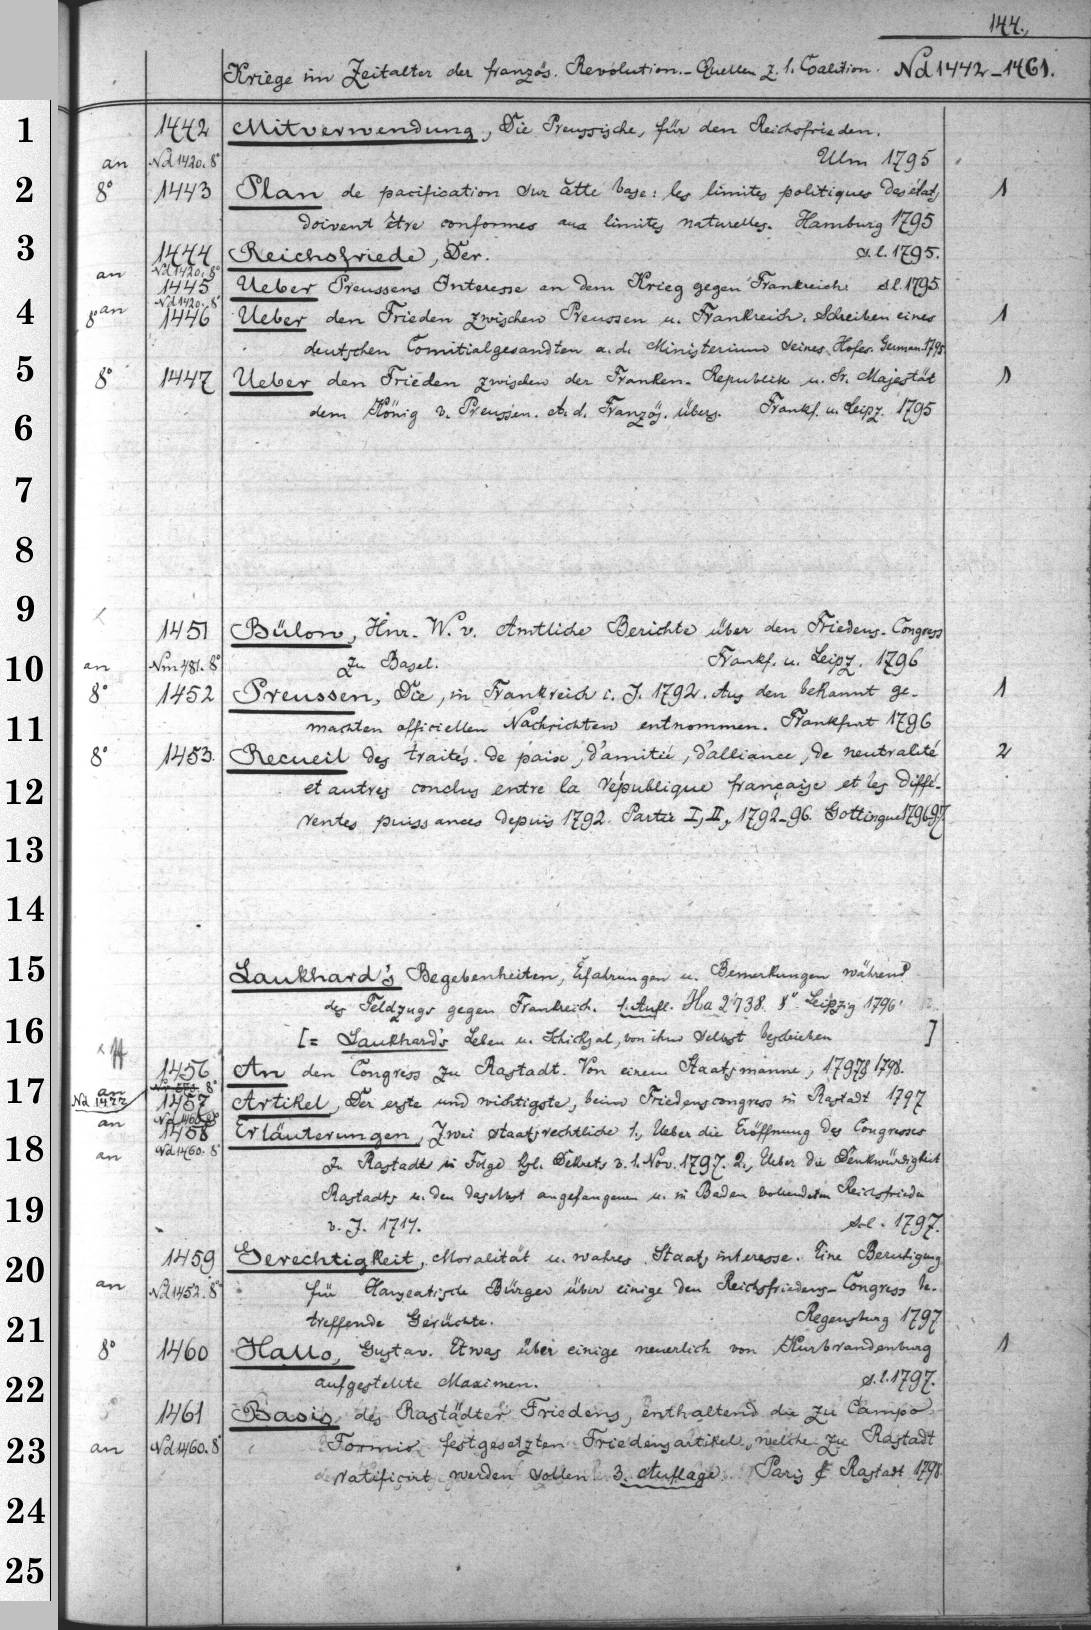 144.
Kriege im Zeitalter der französ. Revolution. - Quellen z. 1. Coalition. Nd 1442-1461.
1 1442 Mitverwendung, Die Preussische, für den Reichsfrieden.
an Nd 1420. 8° Ulm 1795
2 8° 1443 Plan de pacification sur cette base: les limites politiques des états 1
doivent être conformes aux limites naturelles. Hamburg 1795
3 1444 Reichsfriede, Der. s. l. 1795.
an Nd 1420. 8°
1445 Ueber Preussens Interesse an dem Krieg gegen Frankreich. s. l. 1795
an Nd 1420. 8°
4 8° 1446 Ueber den Frieden zwischen Preussen u. Frankreich. Schreiben eines 1
deutschen Comitialgesandten a. d. Ministerium seines Hofes. German. 1795
5 8° 1447 Ueber den Frieden zwischen der Franken-Republik u. Sr. Majestät 1
dem König v. Preussen. A. d. Französ. übers. Frankf. u. Leipz. 1795
6
7
8
9
1451 Bülow, Hnr. W. v. Amtliche Berichte über den Friedens-Congress
10 an Nm 481. 8° zu Basel. Frankf. u. Leipz. 1796
8° 1452 Preussen, Die, in Frankreich i. J. 1792. Aus den bekannt ge- 1
11 machten officiellen Nachrichten entnommen. Frankfurt 1796
8° 1453. Recueil des traités de paix, d'amitié, d'alliance, de neutralité 2
12 et autres conclus entre la république française et les diffé-
rentes puissances depuis 1792. Partie I, II, 1792-96. Gottingue 1796-97.
13
14
15 Laukhard's Begebenheiten, Erfahrungen u. Bemerkungen während
des Feldzugs gegen Frankreich. 1. Aufl. Ha 2738. 8° Leipzig 1796.
16 [= Laukhard's Leben u. Schicksal, von ihm selbst beschrieben ]
1456 An den Congress zu Rastadt. Von einem Staatsmanne, 1797 1798.
17 an 8°
Nd 1422 1457 Artikel, Der erste und wichtigste, beim Friedenscongress in Rastadt 1797
an Nd 1460. 8°
18 1458 Erläuterungen, Zwei staatsrechtliche 1., Ueber die Eröffnung des Congresses
an Nd 1460. 8° zu Rastadt in Folge Dekrets v. 1. Nov. 1797. 2., Ueber die Denkwürdigkeit
19 Rastadts u. den daselbst angefangenen u. in Baden vollendeten Reichsfrieden
v. J. 1714. s. l. 1797.
1459 Gerechtigkeit, Moralität u. wahres Staatsinteresse. Eine Beruhigung
20 an Nd 1452. 8° für Hanseatische Bürger über einige den Reichsfriedens-Congress be-
21 treffende Gerüchte. Regensburg 1797
8° 1460 Hallo, Gustav. Etwas über einige neuerlich von Kurbrandenburg 1
22 aufgestellte Maximen. s. l. 1797.
1461 Basis des Rastädter Friedens, enthaltend die zu Campo
23 an Nd 1460. 8° Formio festgesetzten Friedensartikel, welche zu Rastadt
ratificirt werden sollen. 3. Auflage. Paris & Rastadt 1798.
24
25